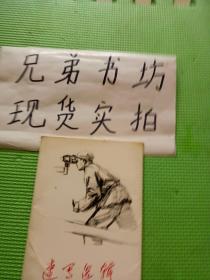 兄弟书坊
现货实拍
速写选辑